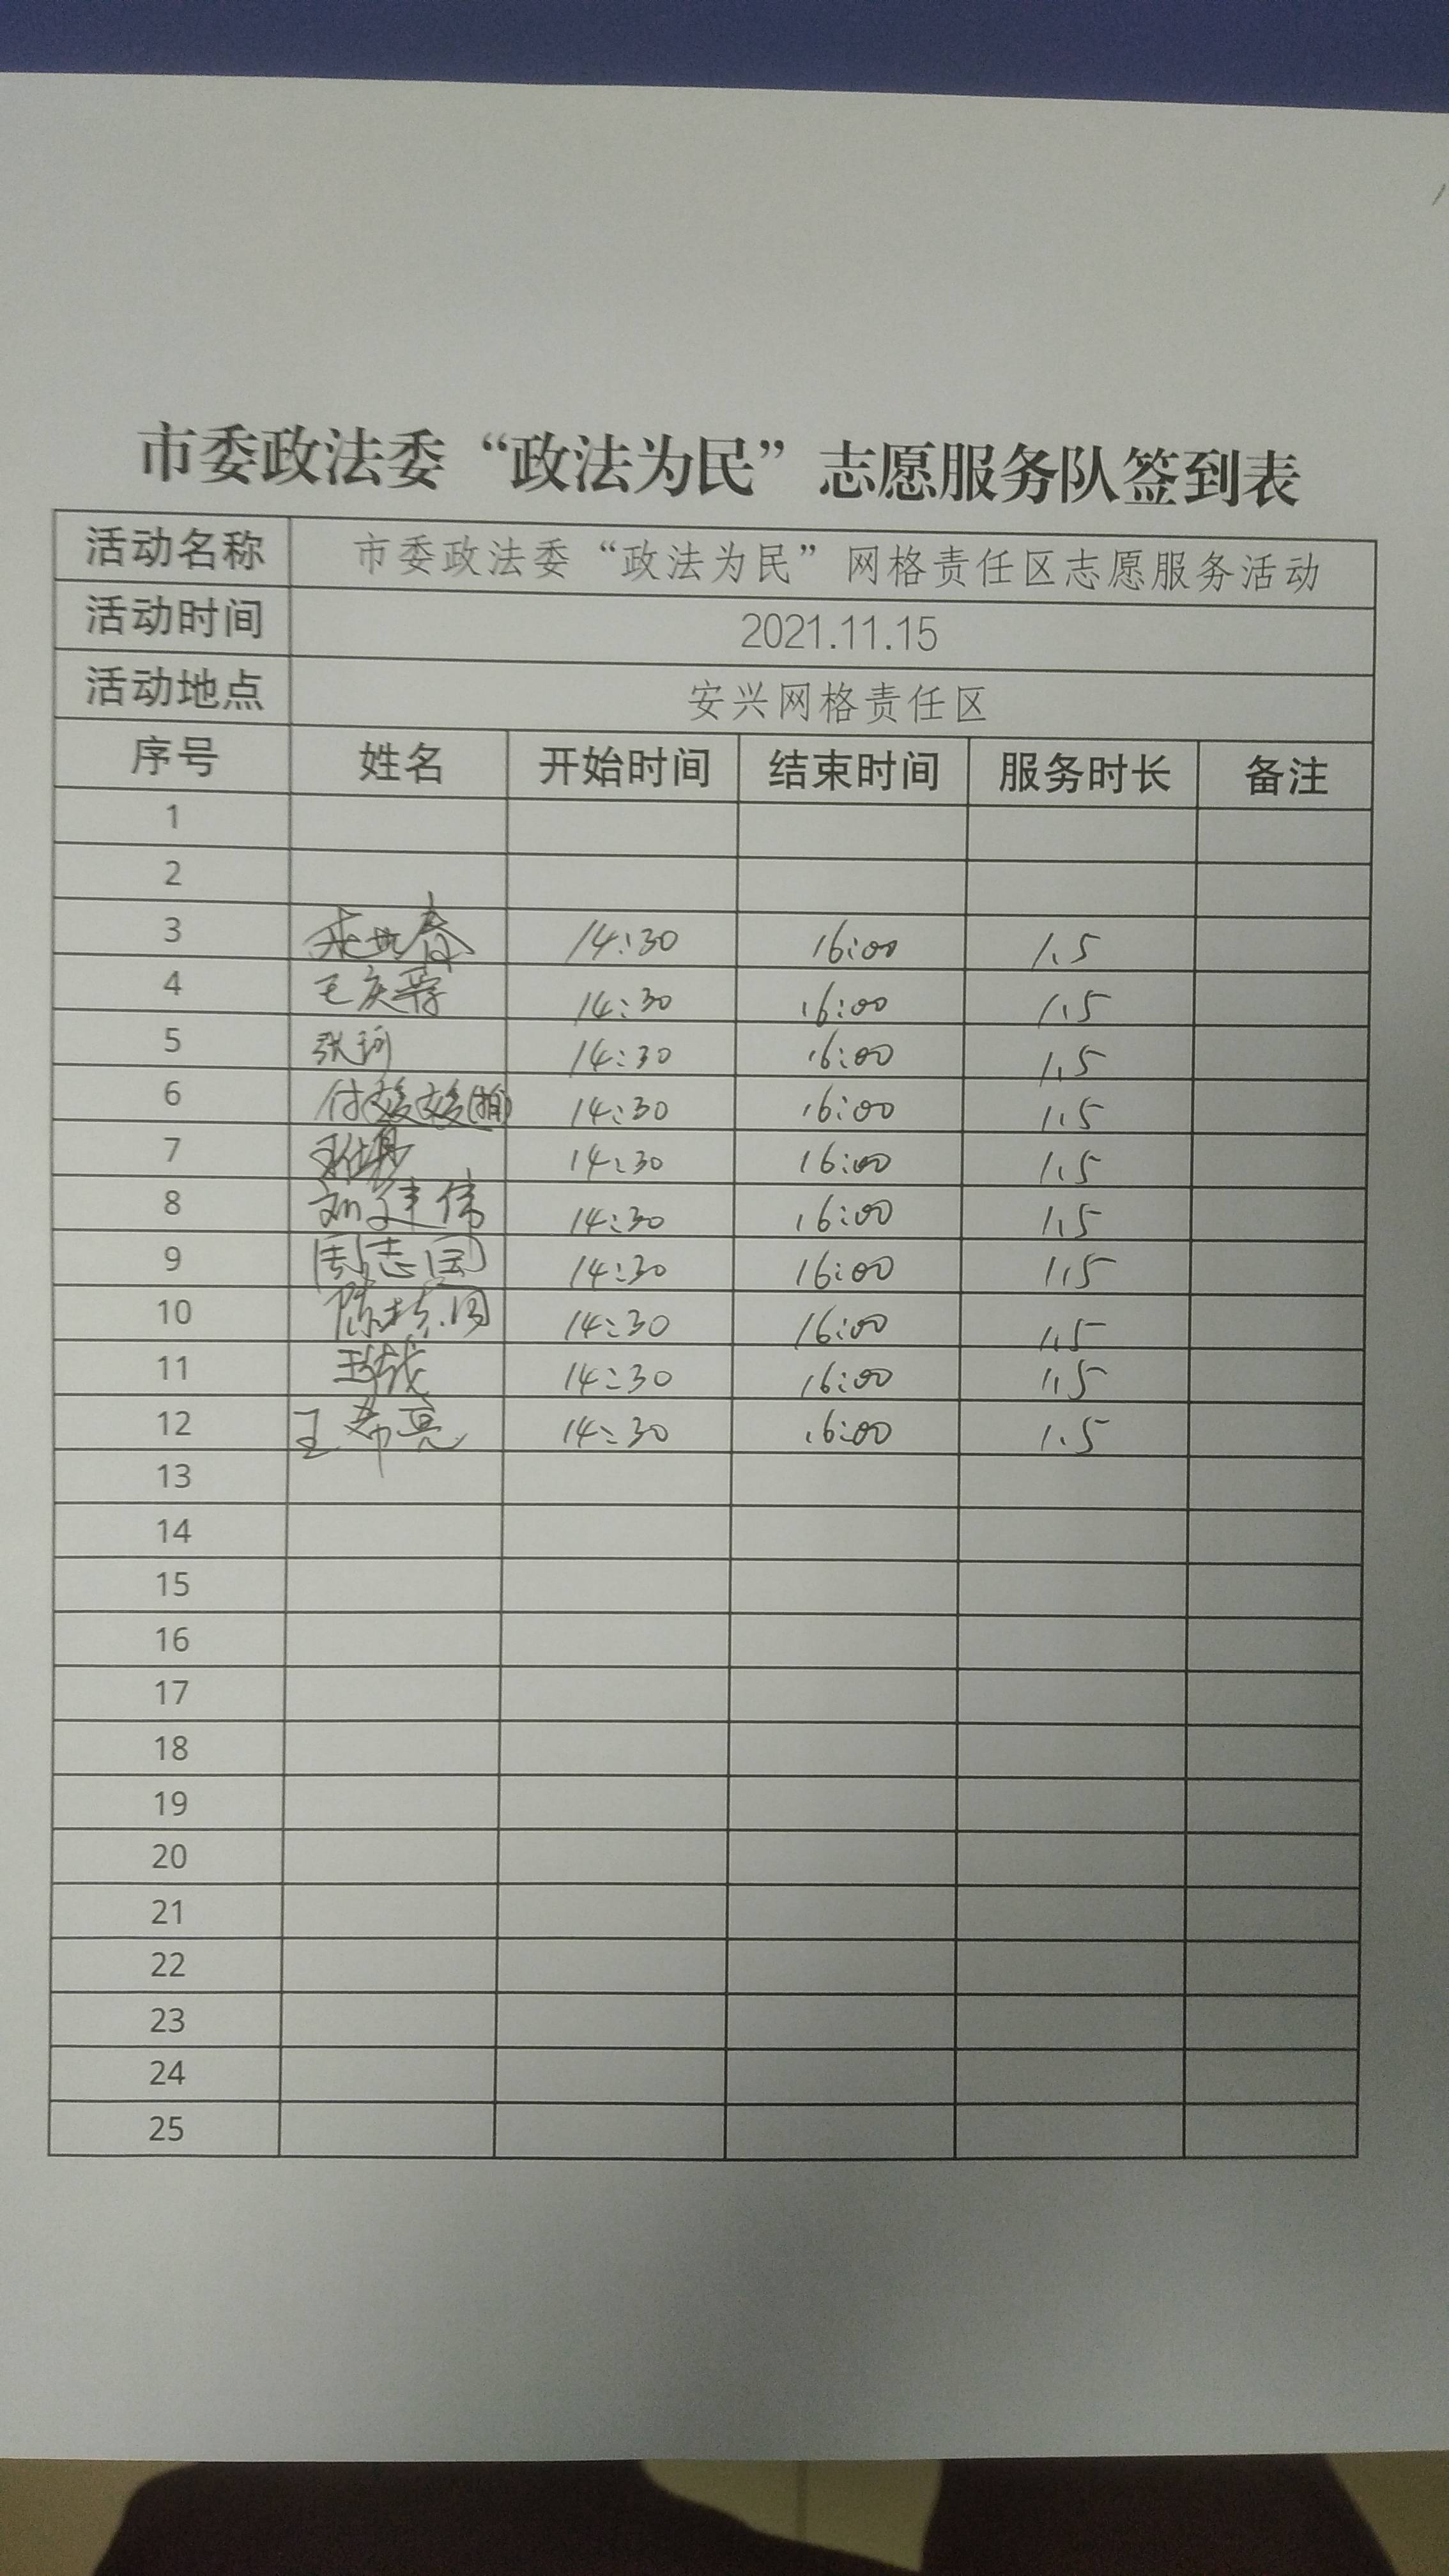 市委政法委“政法为民”志愿服务队签到表
活动名称 市委政法委“政法为民”网格责任区志愿服务活动
活动时间 2021.11.15
活动地点 安兴网格责任区
序号 姓名 开始时间 结束时间 服务时长 备注
1
2
3 14:30 16:00 1.5
4 14:30 16:00 1.5
5 14:30 16:00 1.5
6 14:30 16:00 1.5
7 14:30 16:00 1.5
8 刘建伟 14:30 16:00 1.5
9 周志国 14:30 16:00 1.5
10 14:30 16:00 1.5
11 14:30 16:00 1.5
12 王希亮 14:30 16:00 1.5
13
14
15
16
17
18
19
20
21
22
23
24
25